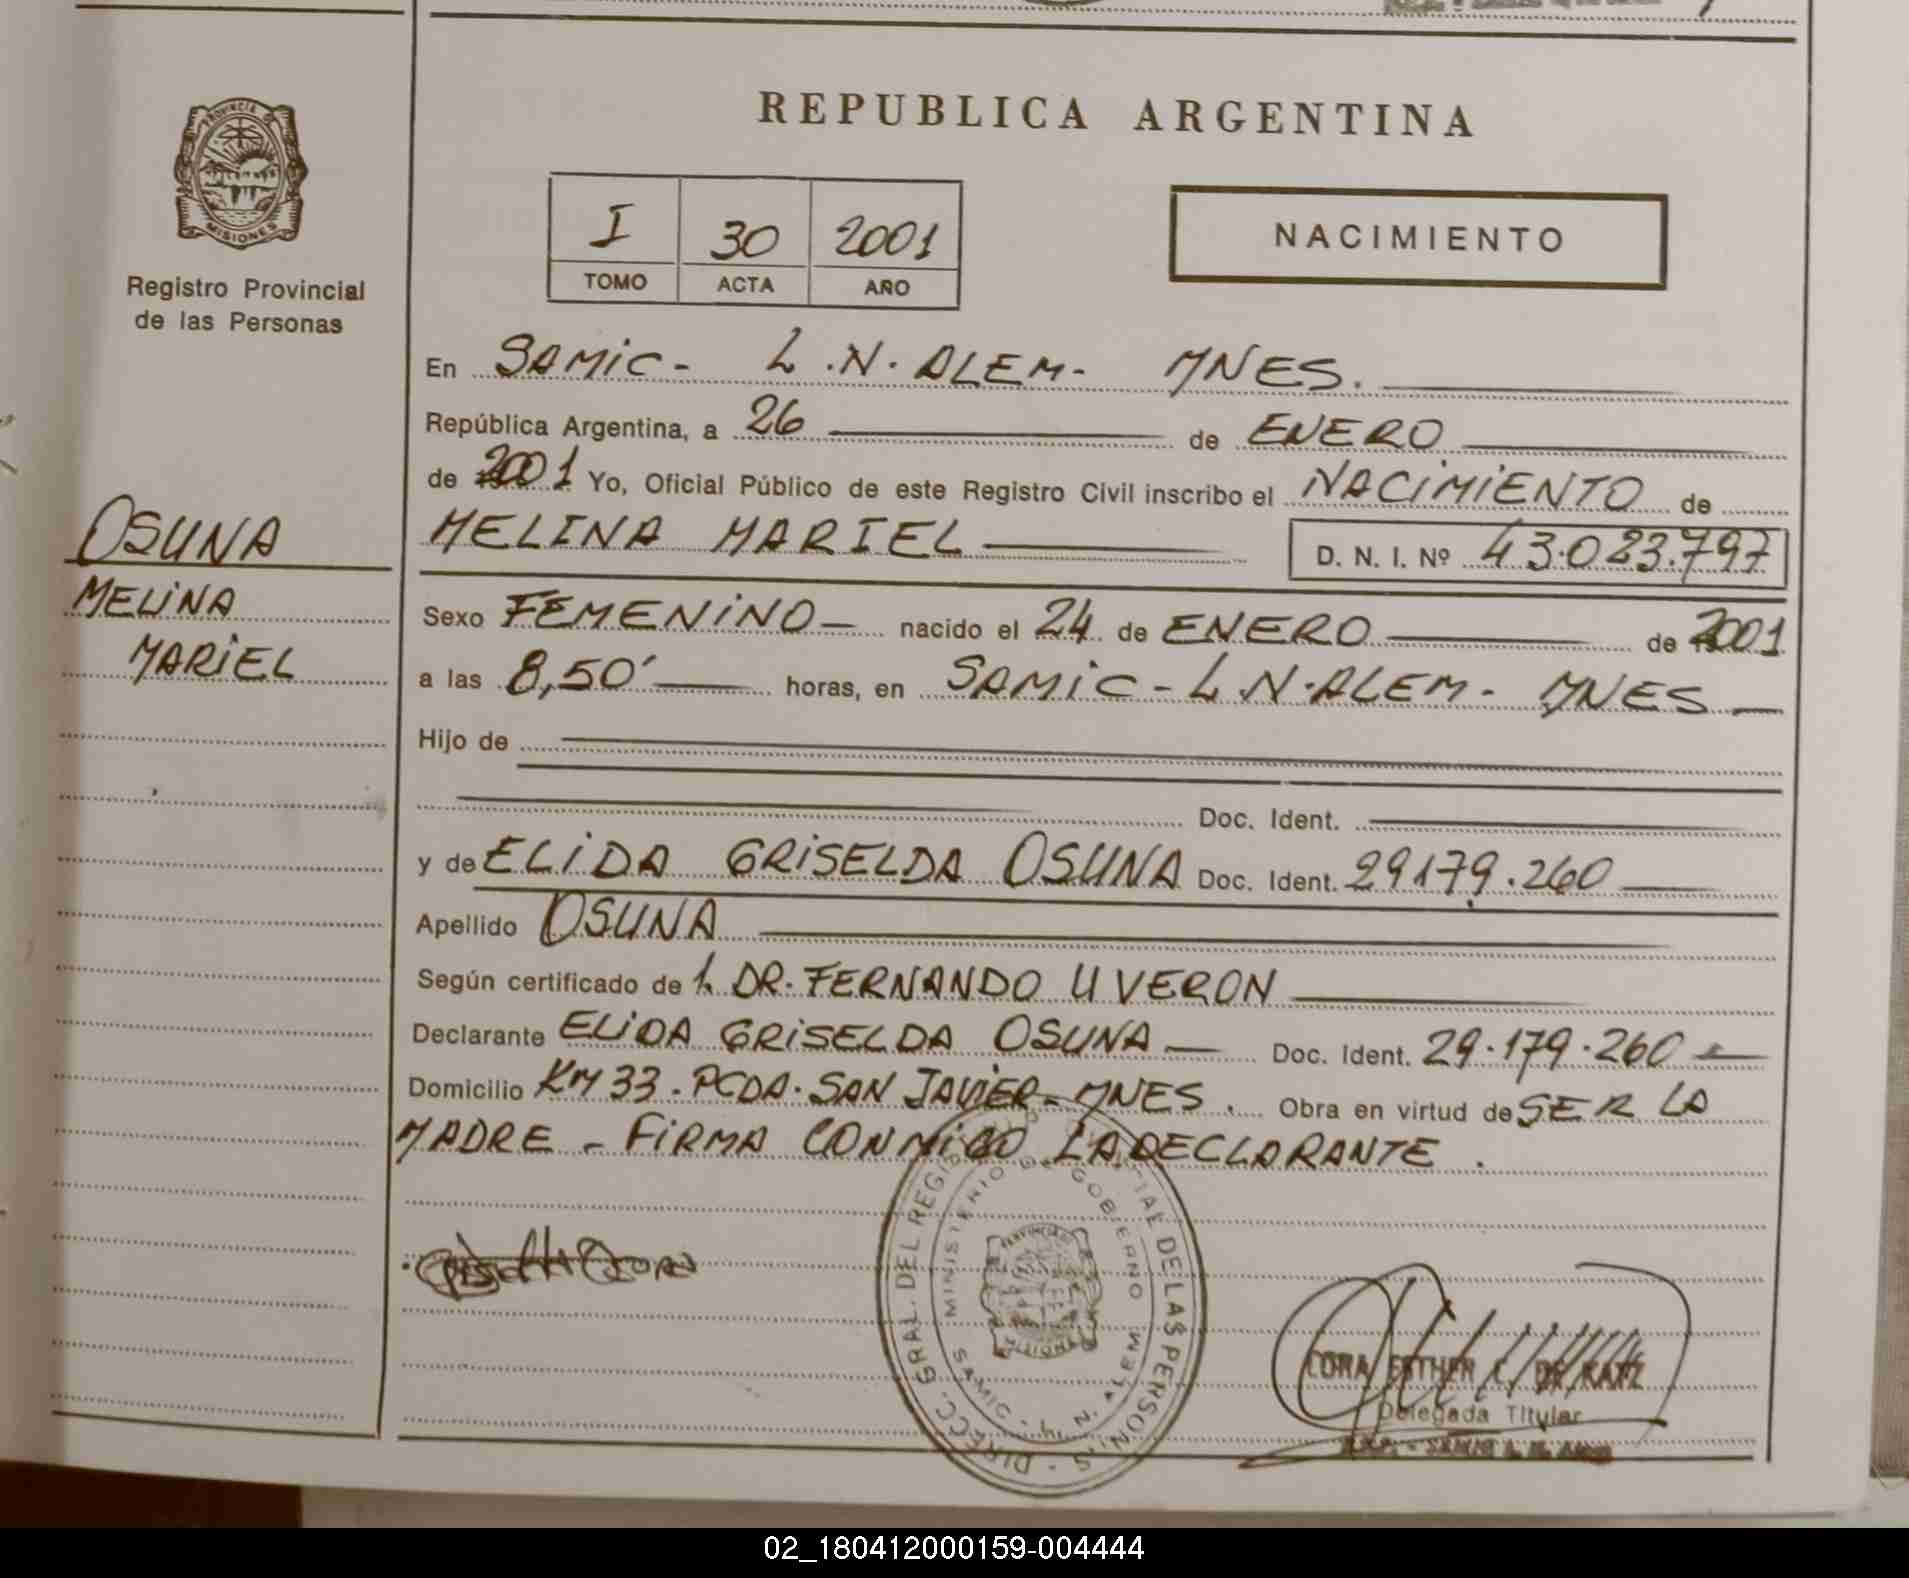 REPUBLICA ARGENTINA
PROVINCIA DE
MISIONES
Registro Provincial
de las Personas
I 30 2001
TOMO ACTA AÑO
NACIMIENTO
En SAMIC- L.N. ALEM- MNES.
República Argentina, a 26 de ENERO
de 2001 Yo, Oficial Público de este Registro Civil inscribo el NACIMIENTO de
OSUNA
MELINA
MARIEL
MELINA MARIEL D. N. I. Nº 43.023.797
Sexo FEMENINO nacido el 24 de ENERO de 2001
a las 8,50' horas, en SAMIC - L.N. ALEM - MNES
Hijo de
Doc. Ident.
y de ELIDA GRISELDA OSUNA Doc. Ident. 29179.260
Apellido OSUNA
Según certificado de 1. DR. FERNANDO U VERON
Declarante ELIDA GRISELDA OSUNA Doc. Ident. 29.179.260
Domicilio KM 33. PCDA. SAN JAVIER - MNES. Obra en virtud de SER LA
MADRE - FIRMA CONMIGO LA DECLARANTE.
DIRECC. GRAL. DEL DE LAS PERSONAS
MINISTERIO DE GOBIERNO
SAMIC - L. N. ALEM
MISIONES
ESTHER C. DE KATZ
Delegada Titular
02_180412000159-004444